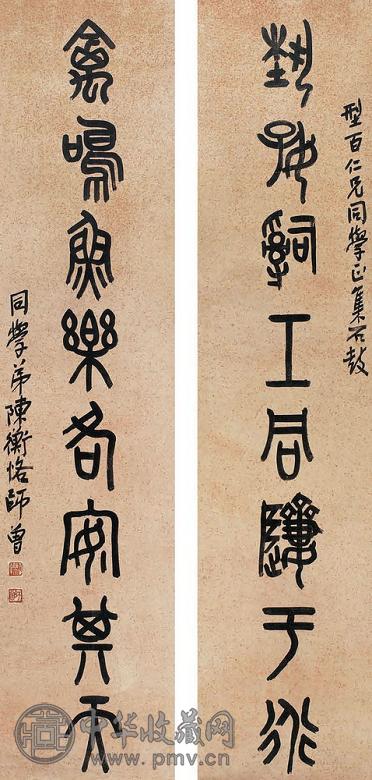 型百仁兄同學正集石鼓
埶好工于
禽鳴魚樂各安其天
同學弟陳衡恪師曾
中华收藏网
www.pmv.cn